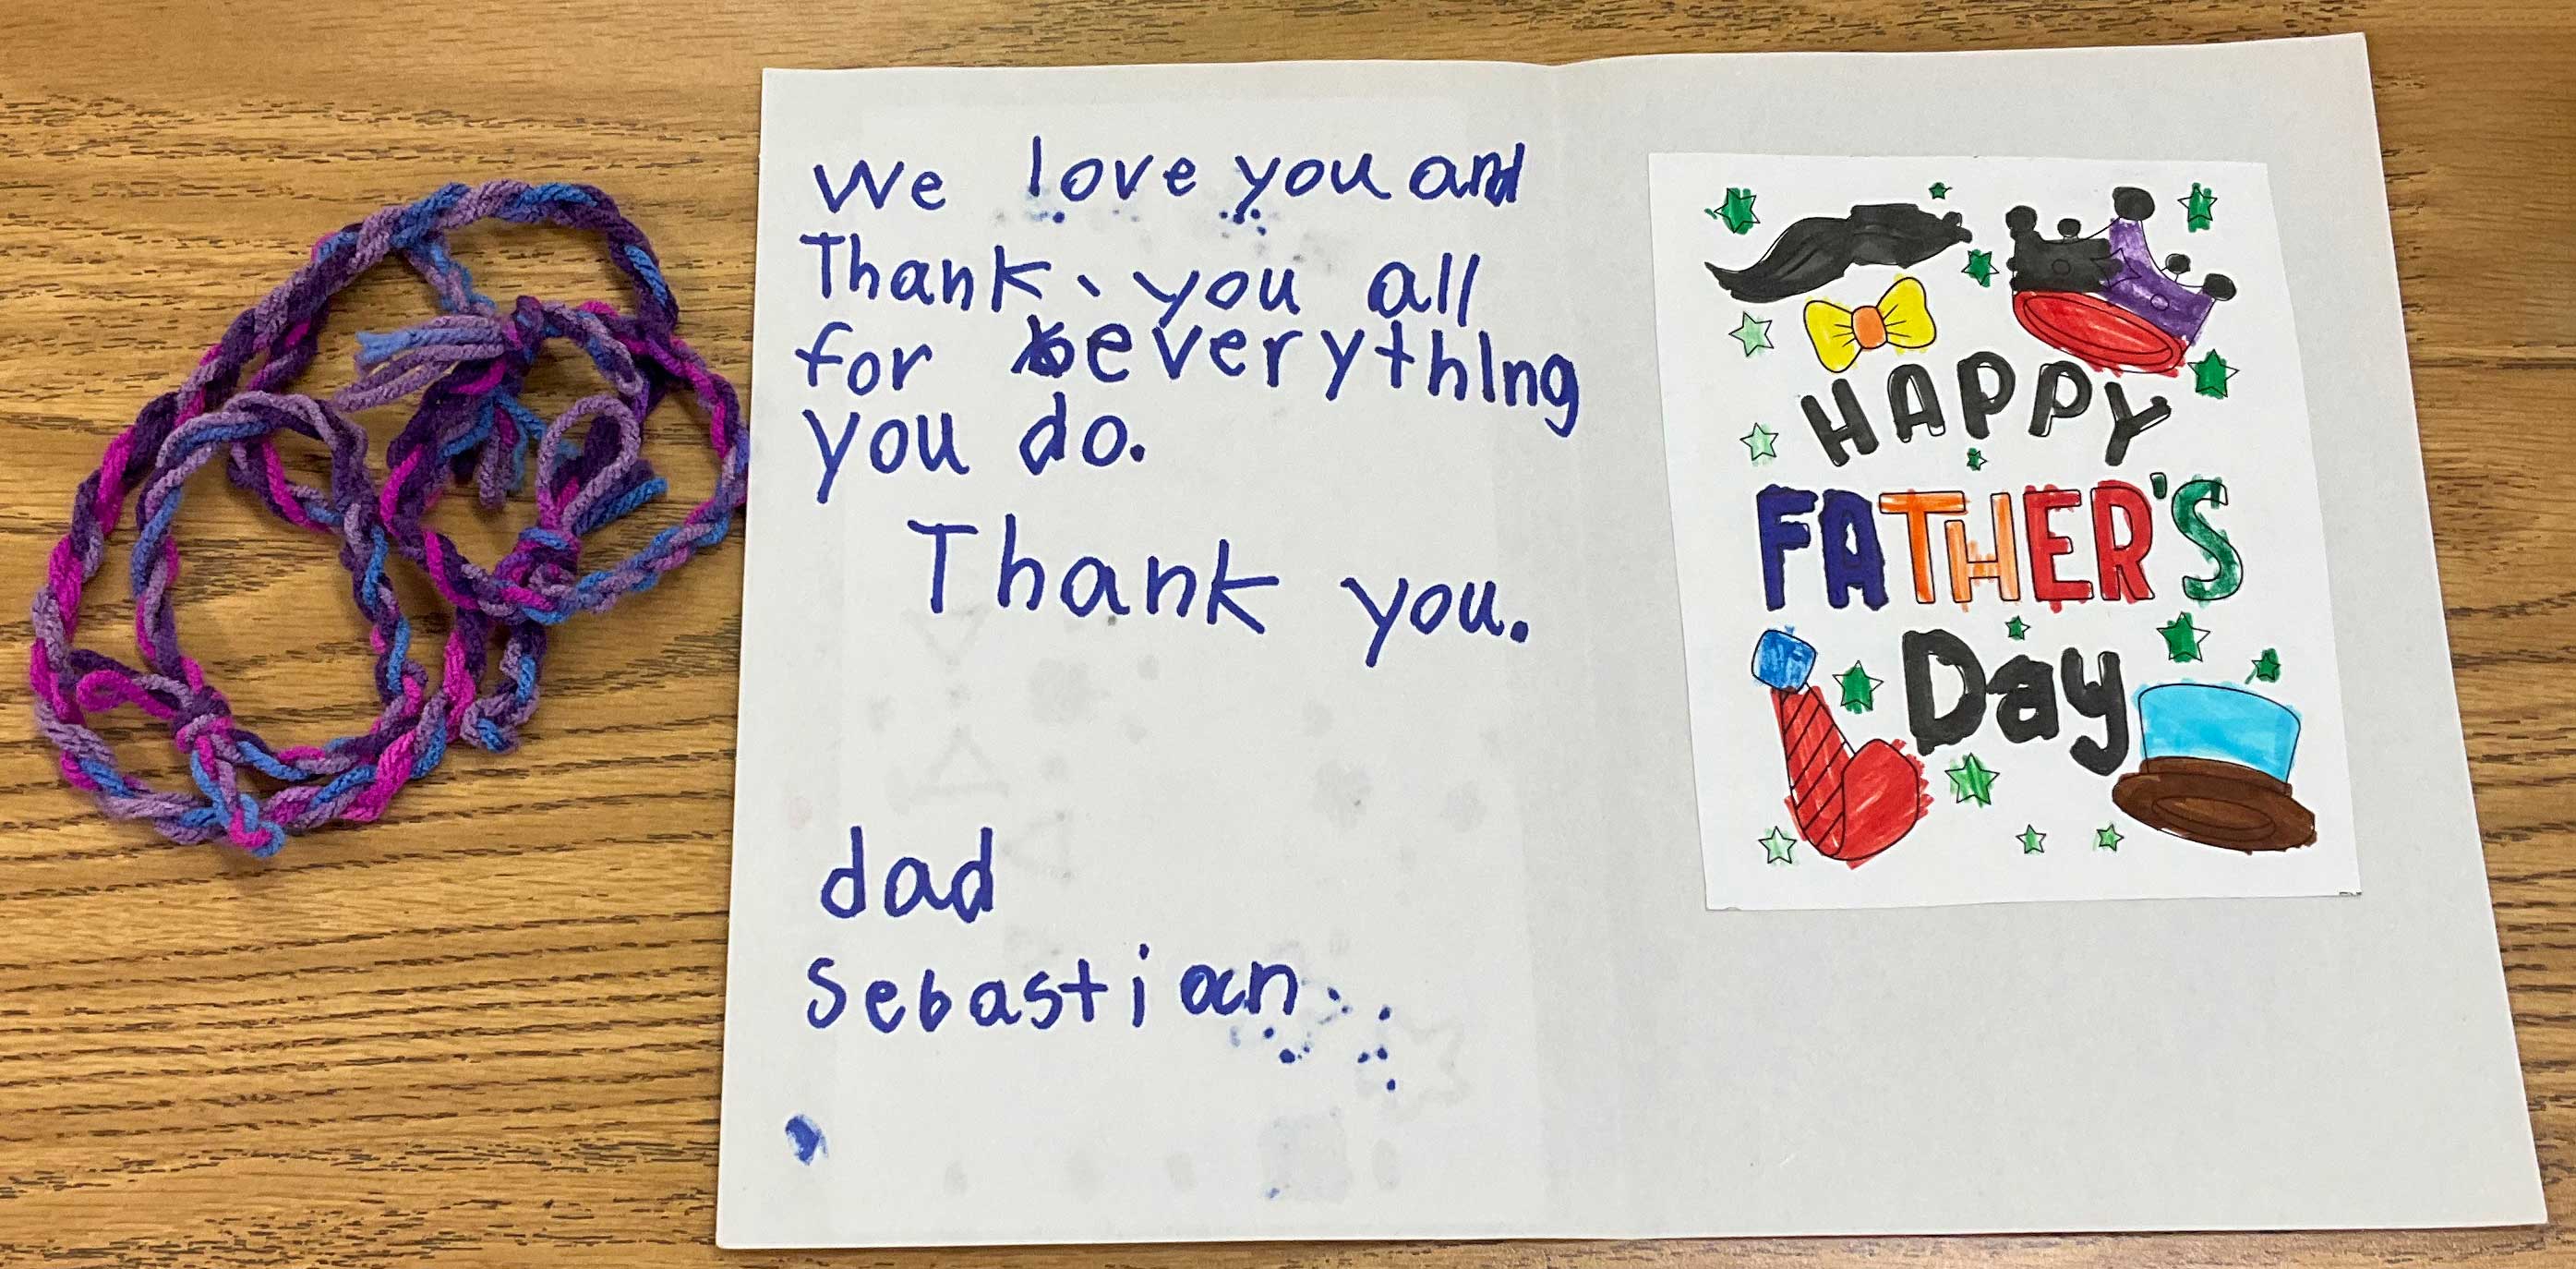 We love you and
Thank you all
for everything
you do.
Thank you.
dad
Sebastian
HAPPY
FATHER'S
Day